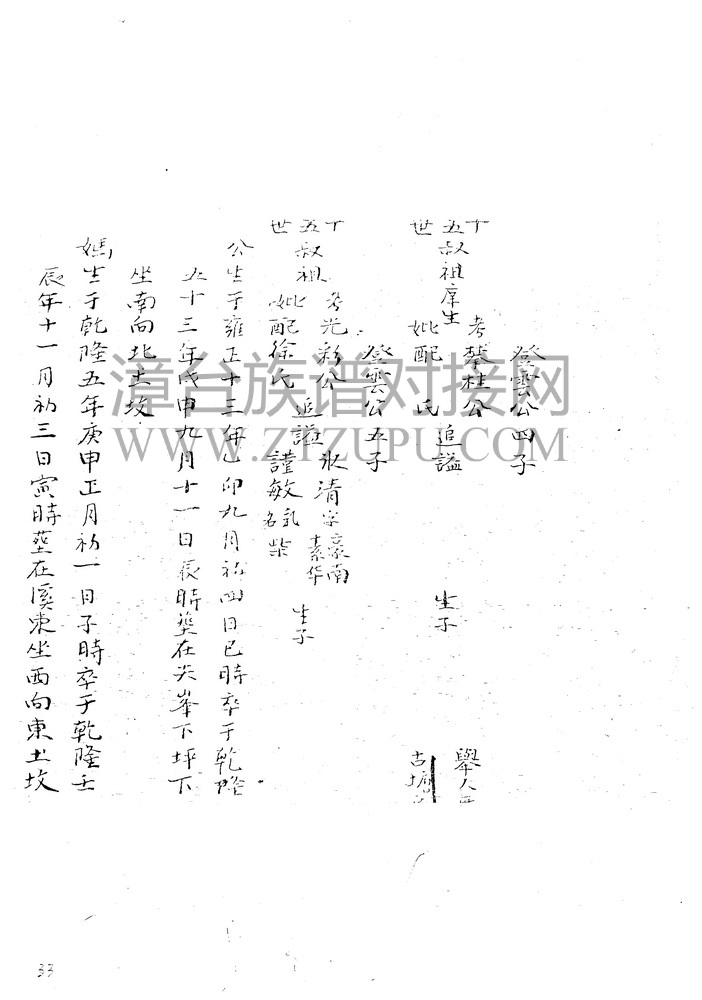 登雲公四子
考攀桂公
十五世叔祖庠生
妣配 氏 追謚
生子
舉人
古
登雲公五子
十五世叔祖
考光彩公
妣配徐氏
追謚
氷清
謹敏
字豪南
素华
乳名柴
生子
公生于雍正十三年乙卯九月初四日巳時卒于乾隆
五十三年戊申九月十一日辰時塟在尖峯下坪下
坐南向北土坟
媽生于乾隆五年庚申正月初一日子時卒于乾隆壬
辰年十一月初三日寅時塟在溪東坐西向東土坟
漳台族谱对接网
WWW.ZTZUPU.COM
33